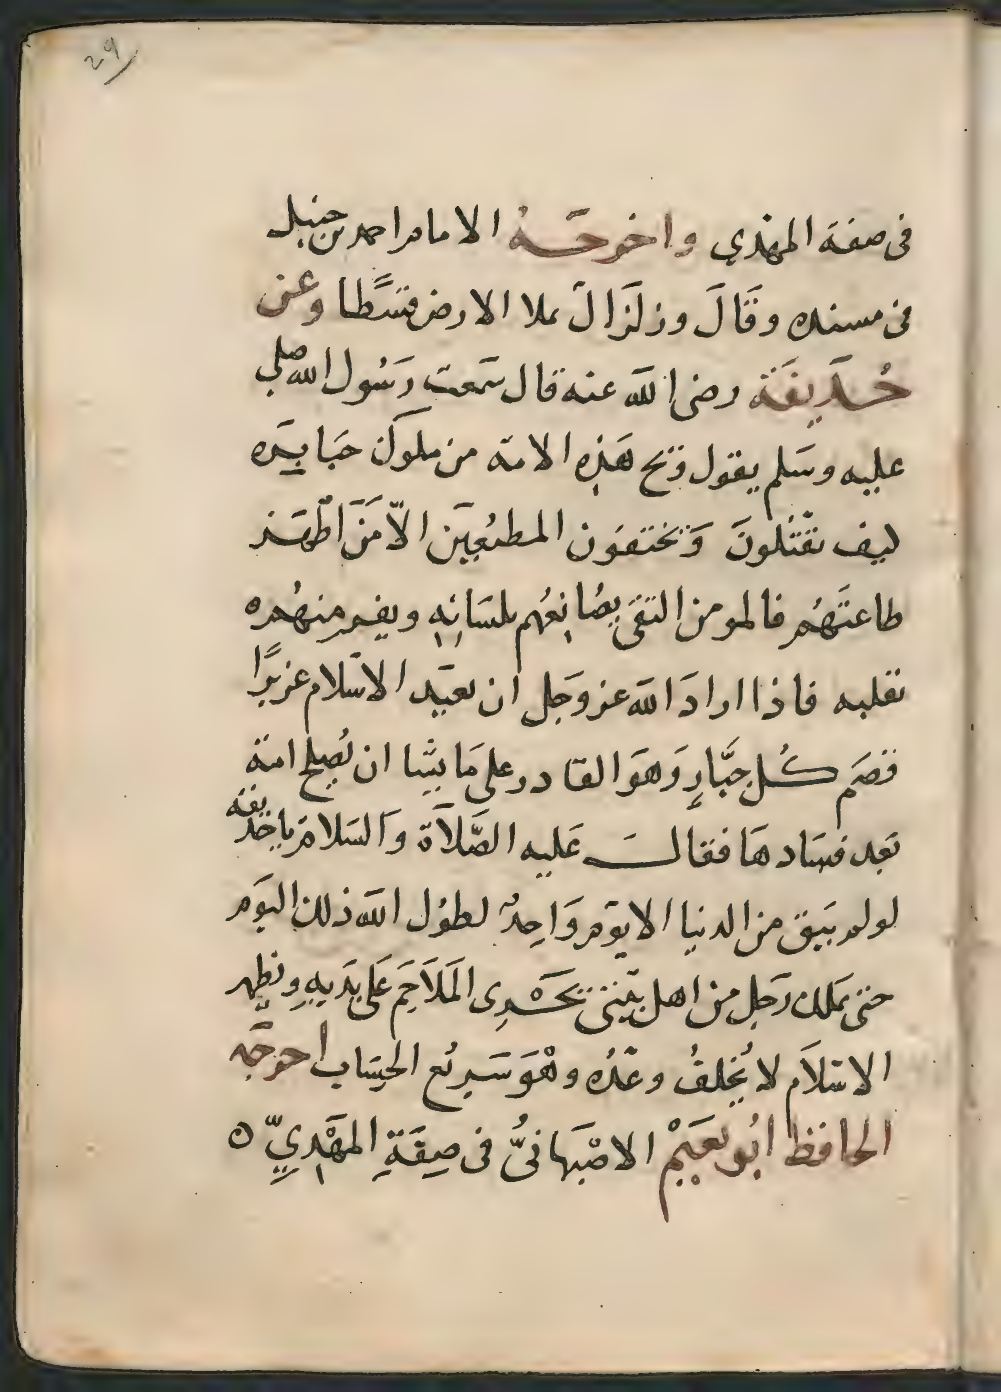 29
في صفة المهدي واخرجه الامام احمد بن حنبل
في مسنده وقال وزلزال يملا الارض قسطا وعن
حذيفة رضي الله عنه قال سمعت رسول الله صلي
عليه وسلم يقول ويح هذه الامة من ملوك جبابيره
كيف يقتلون ويخيفون المطيعين الا من اظهر
طاعتهم فالمومن التقي يصانعهم بلسانه ويفر منهم
بقلبه فاذا اراد الله عز وجل ان يعيد الاسلام عزيزا
قصم كل جبار وهو القادر علي ما يشا ان يصلح امة
بعد فسادها فقال عليه الصلاة والسلام يا حذيفة
لو لم يبق من الدنيا الا يوم واحد لطول الله ذلك اليوم
حتى يملك رجل من اهل بيتي تجري الملاحم على يديه ويظهر
الاسلام لا يخلف وعده وهو سريع الحساب اخرجه
الحافظ ابو نعيم الاصبهاني في صفة المهدي ه